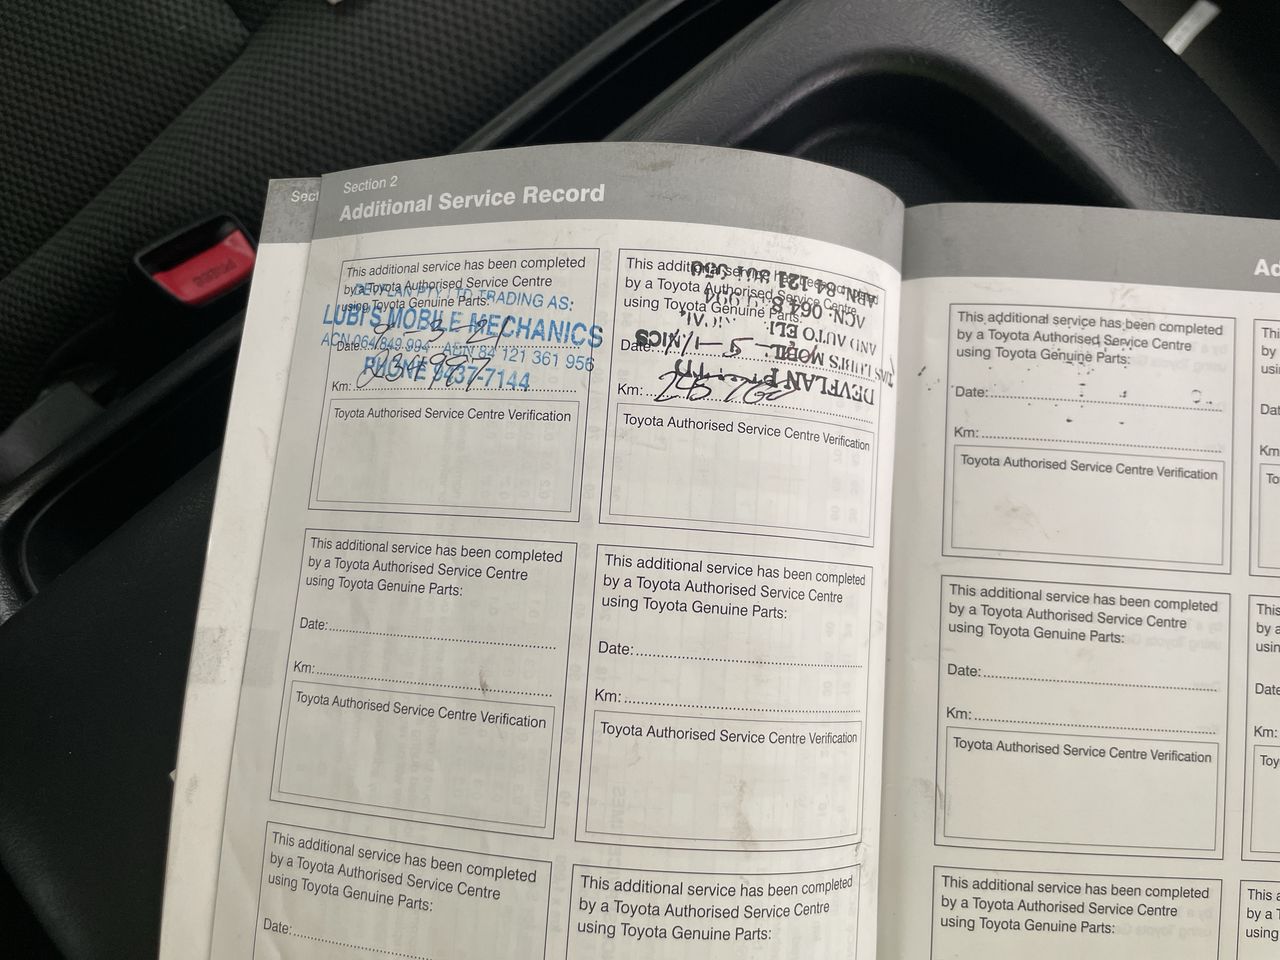 Sect
Section 2
Additional Service Record
This additional service has been completed
by a Toyota Authorised Service Centre
using Toyota Genuine Parts:
DEVFLAN PTY LTD TRADING AS:
LUBI'S MOBILE MECHANICS
ACN 064 849 994 ABN 84 121 361 956
PHONE 9437-7144
Date:
Km:
Toyota Authorised Service Centre Verification
This additional service has been completed
by a Toyota Authorised Service Centre
using Toyota Genuine Parts:
ABN. 84 121
ACN. 064 8
AND AUTO ELE
T/AS LUBI'S MOBIL NICS
DEVFLAN
Date:
Km:
Toyota Authorised Service Centre Verification
This additional service has been completed
by a Toyota Authorised Service Centre
using Toyota Genuine Parts:
Date:
Km:
Toyota Authorised Service Centre Verification
This additional service has been completed
by a Toyota Authorised Service Centre
using Toyota Genuine Parts:
Date:
Km:
Toyota Authorised Service Centre Verification
This additional service has been completed
by a Toyota Authorised Service Centre
using Toyota Genuine Parts:
Date:
This additional service has been completed
by a Toyota Authorised Service Centre
using Toyota Genuine Parts:
Ad
This additional service has been completed
by a Toyota Authorised Service Centre
using Toyota Genuine Parts:
Date:
Km:
Toyota Authorised Service Centre Verification
This
by a
usi
Dat
Km
To
This additional service has been completed
by a Toyota Authorised Service Centre
using Toyota Genuine Parts:
Date:
Km:
Toyota Authorised Service Centre Verification
This
by a
usin
Date
Km:
Toy
This additional service has been completed
by a Toyota Authorised Service Centre
using Toyota Genuine Parts:
This a
by a T
using
PRESS